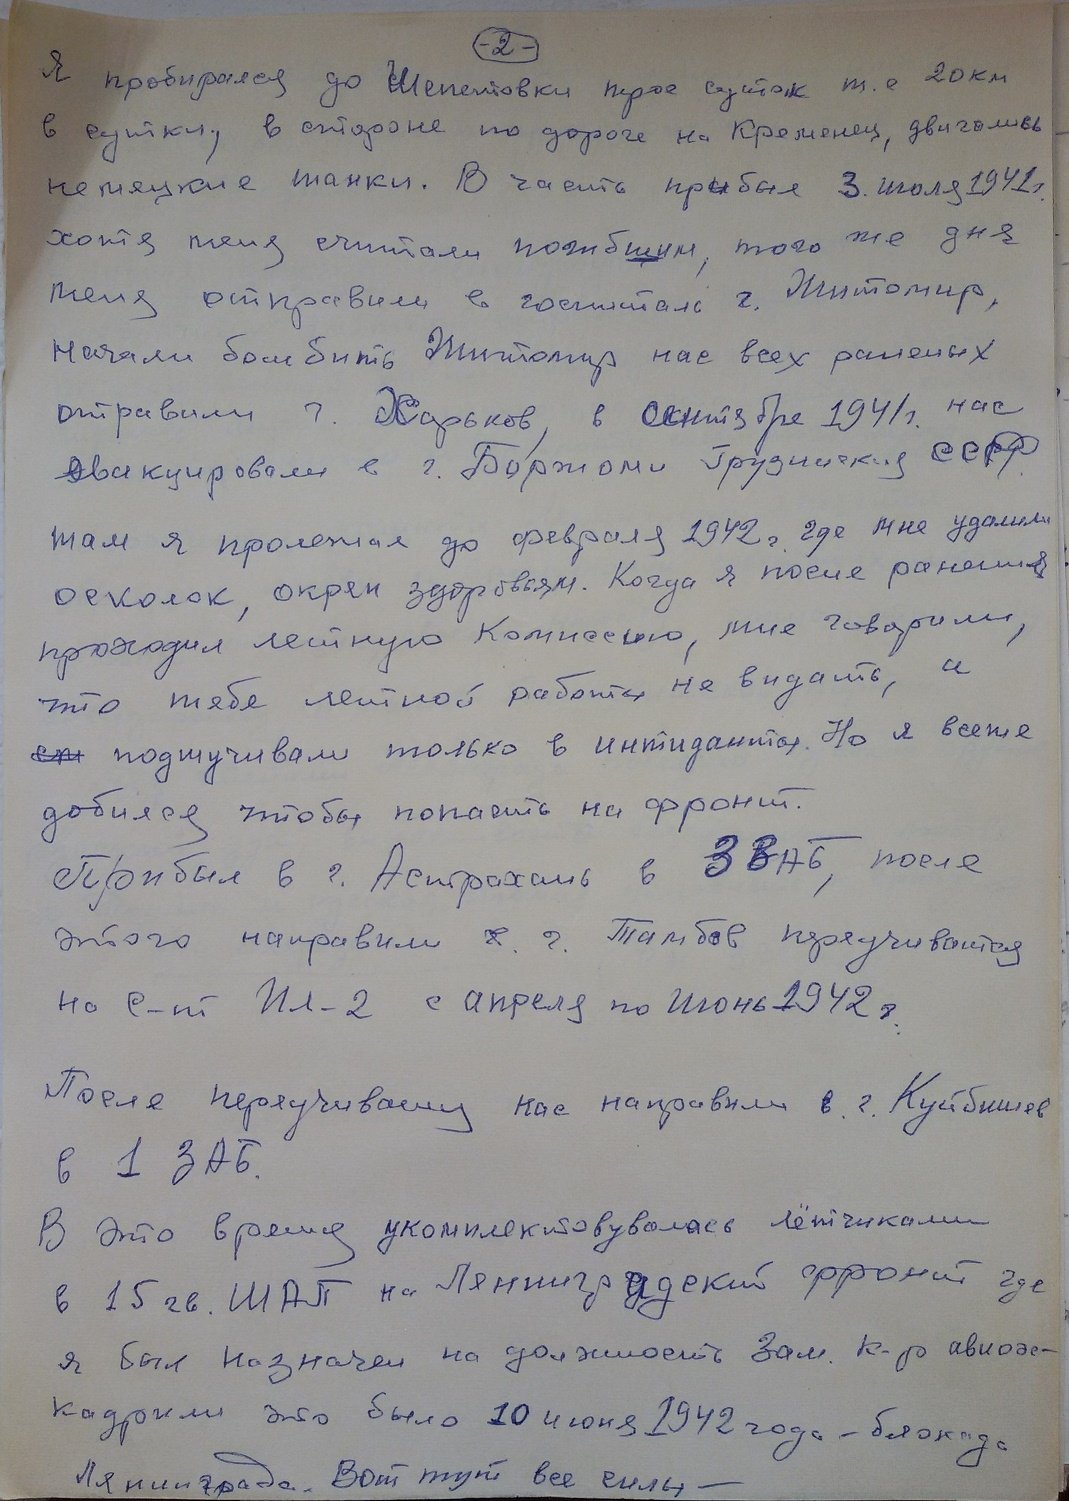 -2-
Я пробирался до Шепетовки трое суток т.е 20км
в сутки, в стороне по дороге на Кременец, двигались
немецкие танки. В часть прибыл 3. июля 1941г.
хотя меня считали погибшим, того же дня
меня отправили в госпиталь г. Житомир,
начали бомбить Житомир нас всех раненых
отравили г. Харьков, в сентябре 1941г. нас
эвакуировали в г. Боржоми Грузинская ССР
там я пролежал до февраля 1942г. где мне удалили
осколок, окреп здоровьям. Когда я после ранения
проходил летную комиссию, мне говорили,
что тебе летной работы не видать, и
подшучивали только в интиданты. Но я всеже
добился чтобы попасть на фронт.
Прибыл в г. Астрахань в ЗВАБ, после
этого направили г. Тамбов переучиватся
на с-т Ил-2 с апреля по Июнь 1942г.
После переучивания нас направили в г. Куйбишев
в 1 ЗАБ.
В это время укомплектовувалась лётчиками
в 15 гв. ШАП на Ленинградский фронт где
я был назначен на должность Зам. к-р авиаэ-
кадрили это было 10 июня 1942 года - блокада
Лянинграда. Вот тут все силы -